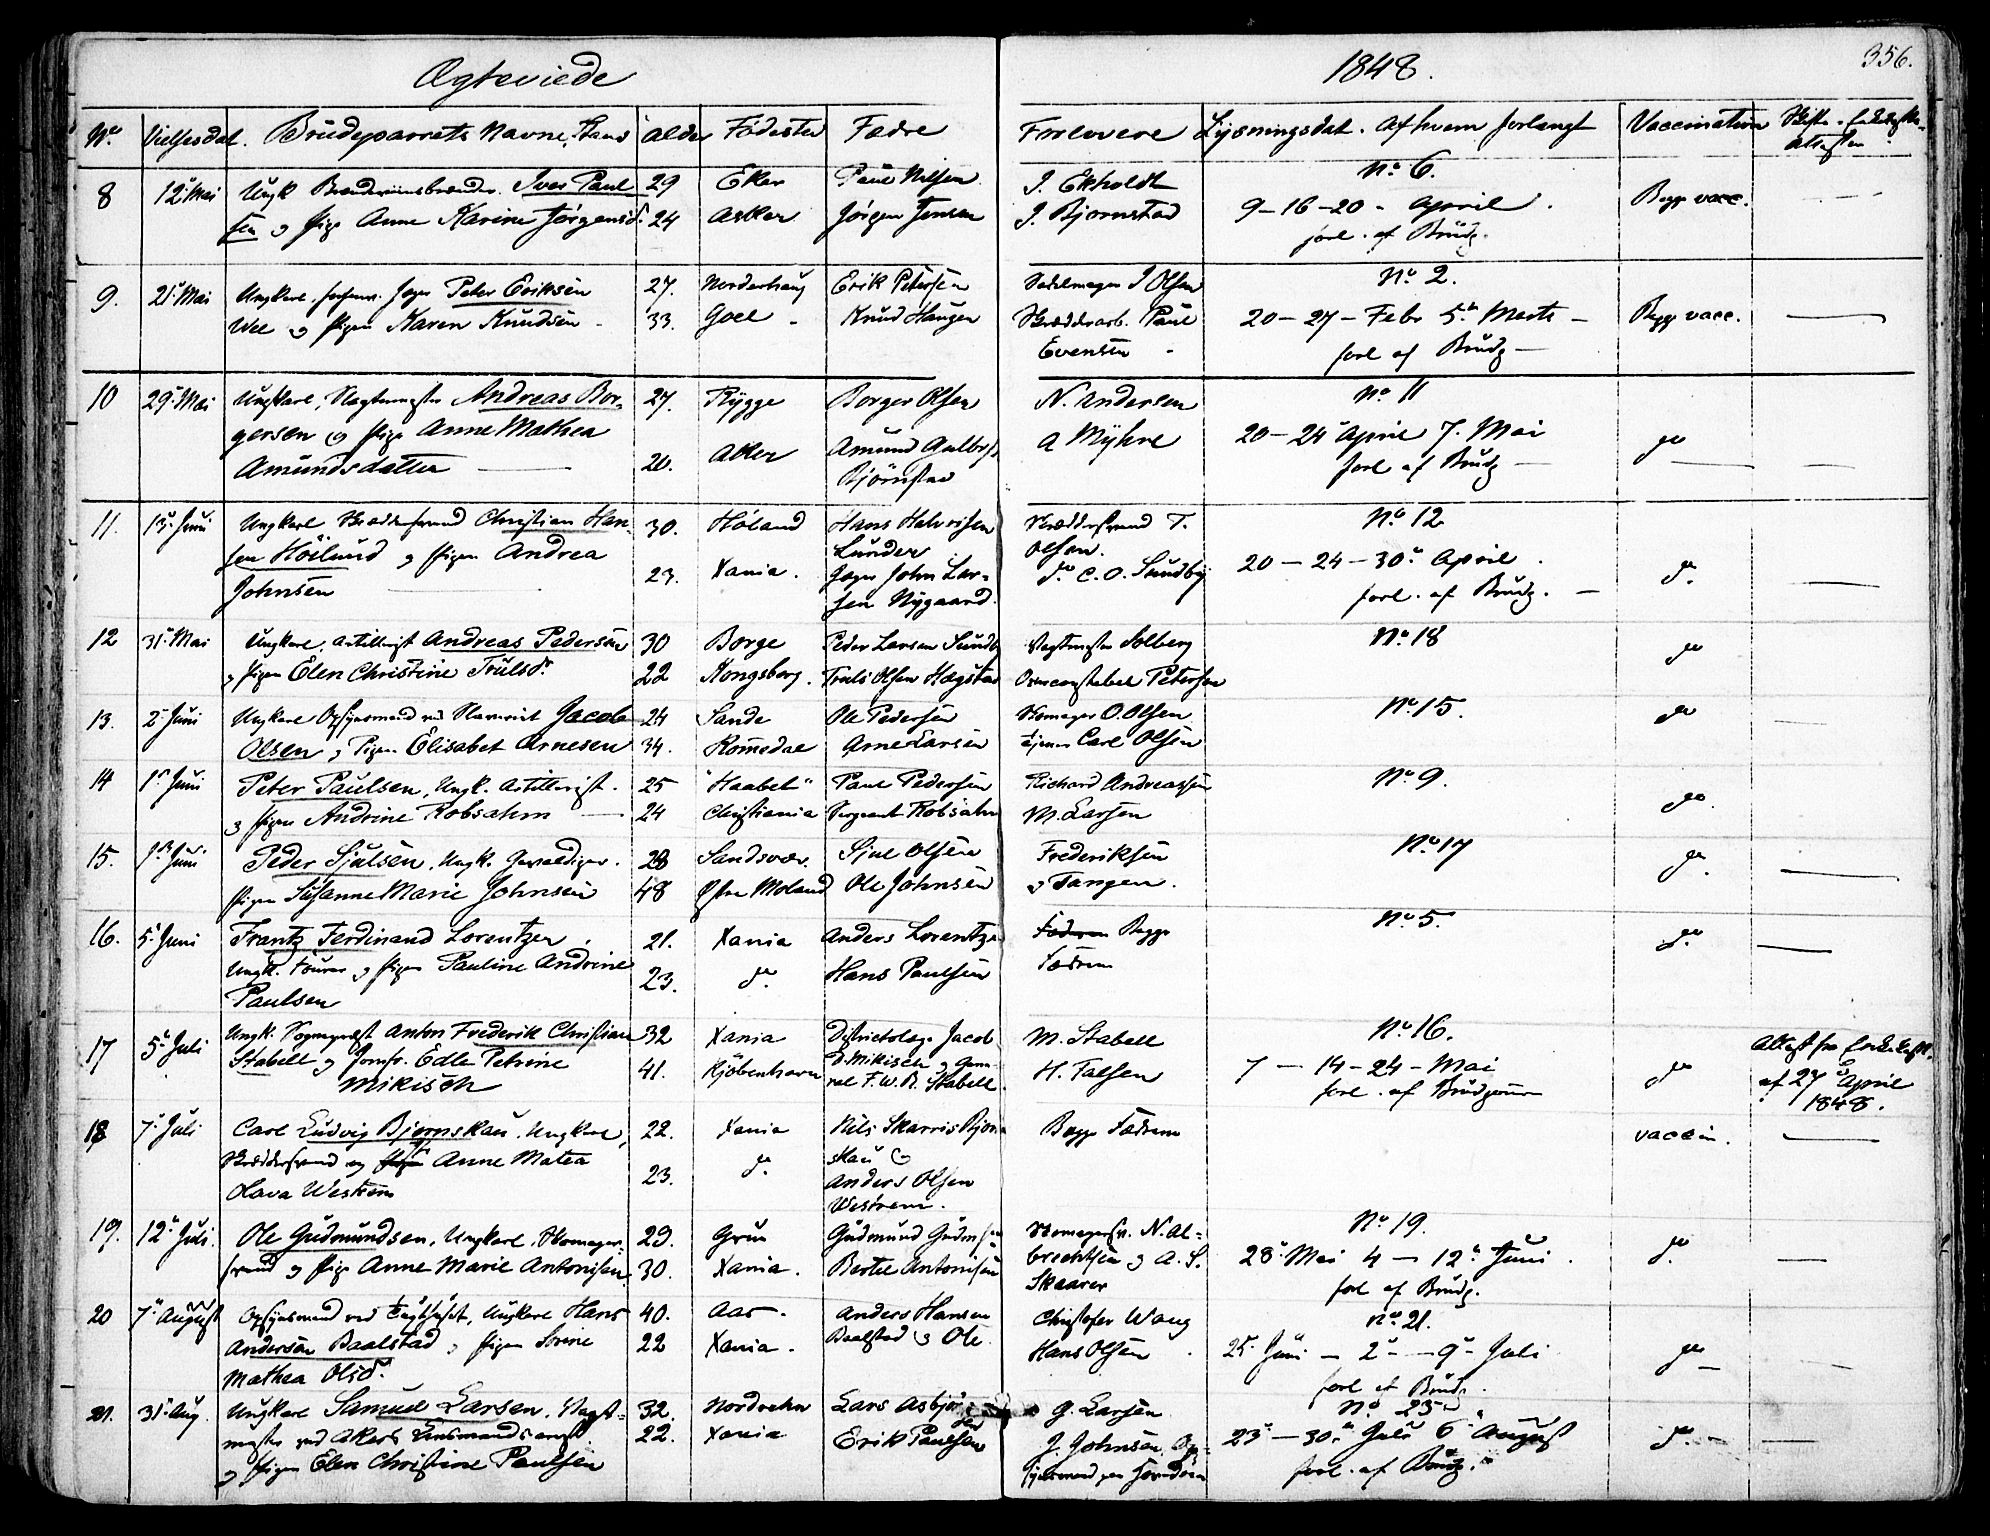 Ægteviede
1848.
356.
No Vielsesdat. Brudeparrets Navne, Stand Alder Fødested Fædre Forlovere Lysningsdat. Af hvem forlangt Vaccination
8 12 Mai Ungk Iver Paul 29 Eker Paul Nilsen J. Ekholdt No 6.
sen og Pige Anne Karine Jørgensd. 24 Asker Jörgen Jensen J. Bjornstad 9-16-20- April. Begge vacc.
forl. af Brudg.
9. 21. Mai Ungkarl Peter Eriksen 27. Norderhaug Erik Petersen Sadelmager J Olsen No 2.
Wee og Pigen Karen Knudsen 33. Goel Knud Haugen Skrædderarb. Paul 20-27- Febr 5te Marts Begge vacc.
Evensen forl af Brudg
10 29. Mai Ungkarl, Vagtmester Andreas Bor- 27. Rygge Borger Olsen N. Andersen No 11
gersen og Pige Anne Mathea 20. Aker Amund Gulbrs. A Myhre 20-24 April 7. Mai do
Amundsdatter Björnstad forl af Brudg
11. 13. Juni Ungkarl Skræddersvend Christian Han- 30. Höland Hans Halvorsen Skræddersvend T. No 12
sen Höilund og Pigen Andrea Lunder Olsen.
Johnsen 23. Xania. John Lar- do C. O. Sundby 20-24-30. April. do
sen Nygaard. forl. af Brudg.
12 31. Mai Ungkarl, Artillerist Andreas Pedersen 30 Borge Peder Larsen Sundby Vagtmester Solberg No 18
og Pigen Elen Christine Trulsdr. 22 Kongsberg. Truls Olsen Hægstad Overconstabel Petersen do
13. 2. Juni Ungkarl Opsynsmand ved Slaveriet Jacob 24 Sande Ole Pedersen Skomager O. Olsen No 15.
Olsen og Pigen Elisabet Arnesen 34. Romedal Arne Larsen Tjener Carl Olsen do
14 1. Juni Peter Paulsen, Ungk. Artillerist. 25 "Haabet" Paul Pedersen Richard Andreassen No 9.
og Pigen Andrine Robsahm 24 Christiania Sergeant Robsahm M. Larsen do.
15. Juni Peder Sjulsen, Ungk. Gevaldiger. 28 Sandsvær. Sjul Olsen Frederiksen No 17
Pigen Susanne Marie Johnsen 48 Østre Moland Ole Johnsen og Tangen. do.
16. 5. Juni Frantz Ferdinand Lorentzen. 21. Xania Anders Lorentzen Fædrene Begge No 5.
Ungk. og Pigen Pauline Andrine 23. do. Hans Paulsen Fædrene do.
Paulsen
17 5. Juli Ungk. Sognepræst Anton Frederik Christian 32 Xania Districtslæge Jacob M. Stabell No 16. Attest fra
Stabell og Jomfr. Edle Petrine 41. Kjöbenhavn Mikisch og Gene- H. Falsen 7-14-24- Mai do af 27 April
Mikisch ral F. W. B. Stabell. forl. af Brudgom 1848.
18 7. Juli Carl Ludvig Bjornskau, Ungkarl, 22. Xania Nils Skarris Bjorn Begge Fædrene vaccin.
Skræddersvend og Pige Anne Matea 23. do. skau og
Hava Westrem Anders Olsen
Westrem.
19. 12. Juli. Ole Gudmundsen, Ungkarl, Skomager- 29. Grue Gudmund Gudmsen Skomagersv. N. Al- No 19.
svend og Pige Anne Marie Antonisen. 30. Xania. Bertel Antonisen brechtsen og A. S. 28. Mai 4-12. Juni. do.
Skaarer forl af Brudg.
20 7. August Opsynsmand ved Tugthuset, Ungkarl Hans 40. Aas. Anders Hansen Christofer Wang No 21.
Andersen Baalstad og Pigen Sorine 22 Xania. Baalstad og Ole Hans Olsen 25 Juni - 2. - 9. Juli do
Mathea Olsdr. forl af Brudg.
21. 31. Aug. Ungkarl Samuel Larsen, Vagt- 32. Nordrehn Lars Asbjör G. Larsen No 23
mester ved Akers Lensmandsarrest 22. Xania Erik Paulsen J. Johnsen, Op- 23.-30. Juli 6 August do.
og Pigen Elen Christine Paulsen synsmand forl. af Brudg.